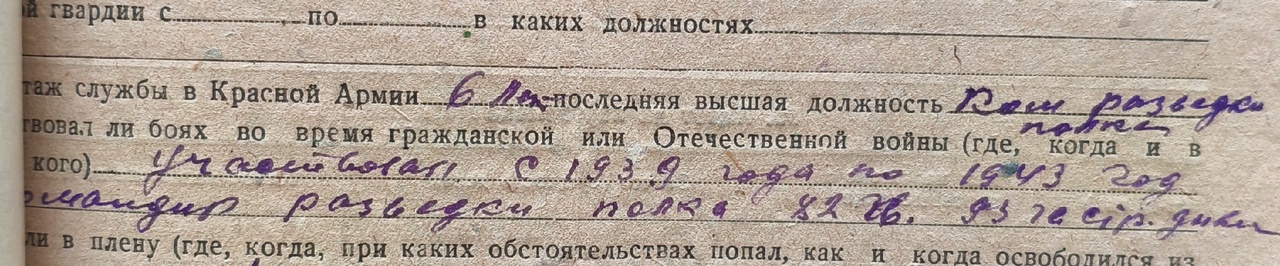 й гвардии с по в каких должностях
таж службы в Красной Армии 6 лет последняя высшая должность Ком разведки
полка
твовал ли боях во время гражданской или Отечественной войны (где, когда и в
кого) Участвовал с 1939 года по 1943 год
омандир разведки полка 82 93 стр.
ли в плену (где, когда, при каких обстоятельствах попал, как и когда освободился из